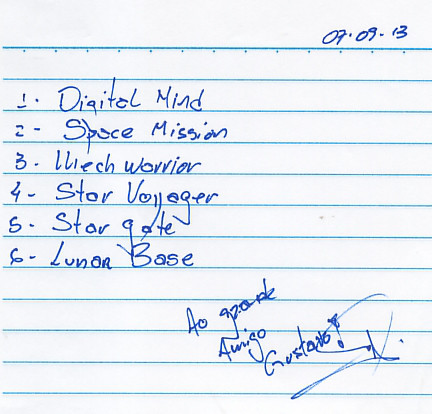 07-09-13
1. Digital Mind
2- Space Mission
3. Mech warrior
4- Star Voyager
5- Star gate
6- Lunar Base
Ao grande
Amigo
Gustavo!